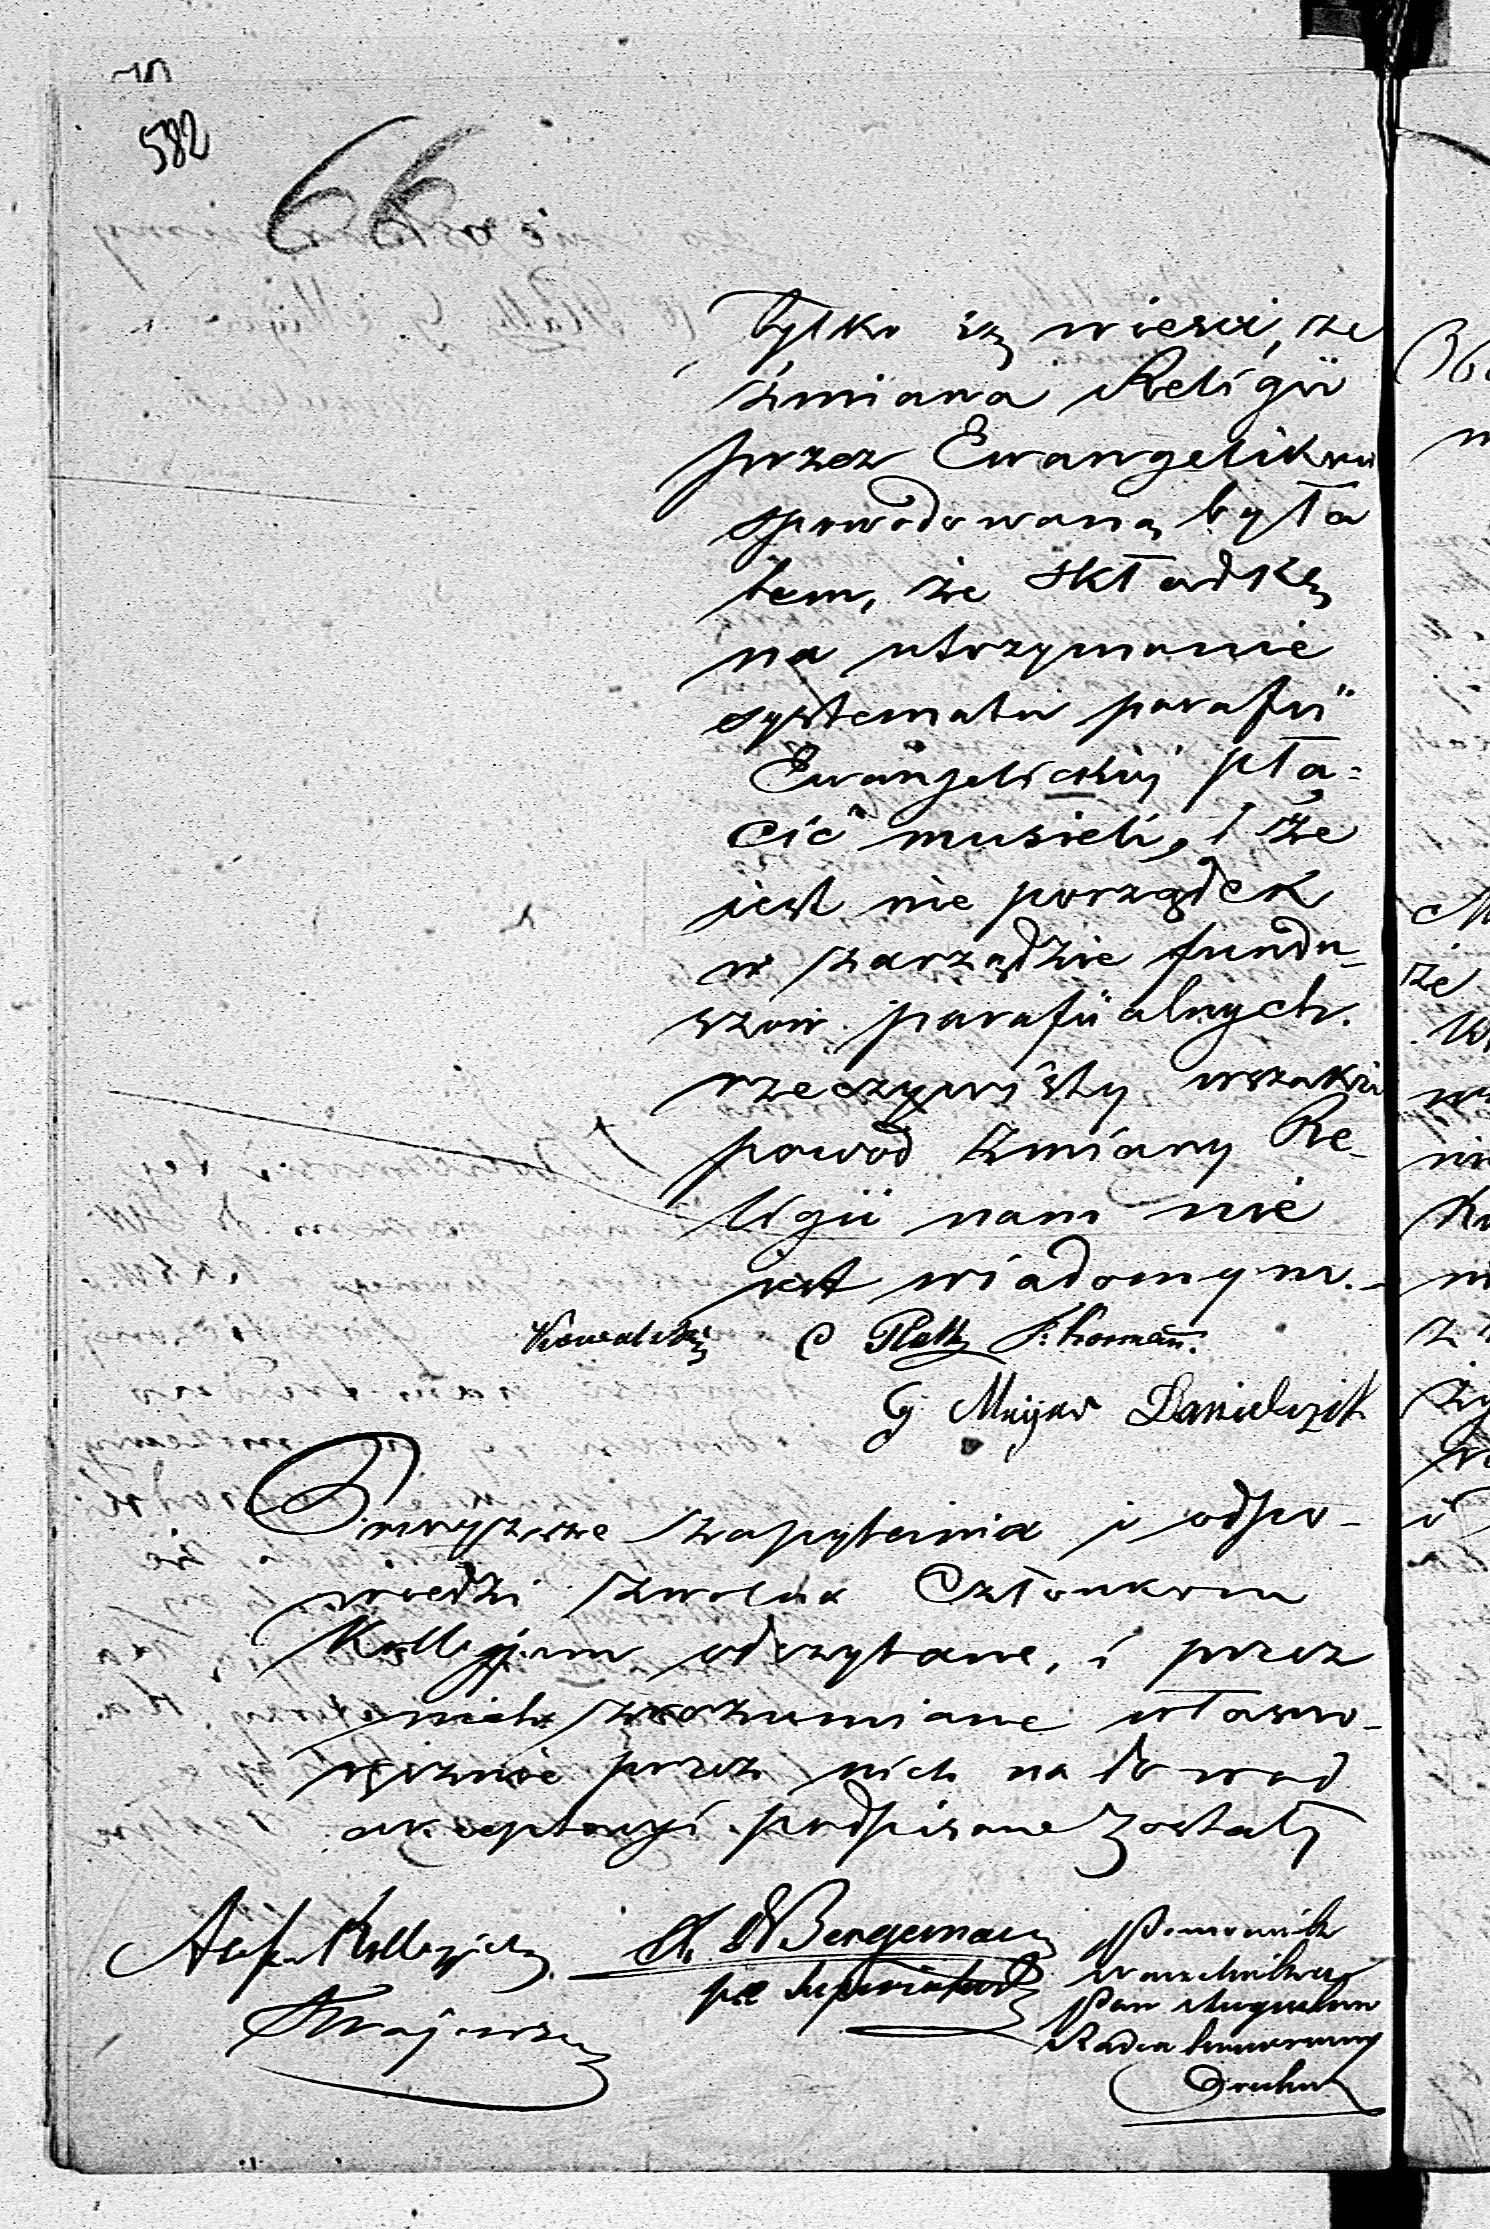 582
66
tylko są wieści, że
zmiana Religii
przez Ewangelików
spowodowaną była
tem, że składkę
na utrzymanie
systematu parafii
Ewangelickiej pła=
cić musieli, i że
jest nie porządek
w zarządzie fundu-
szów parafii alnych.
rzeczywisty wszakże
powód zmiany Re-
ligii nam nie
jest wiadomym.
Kowalski C Platt F. Kormann.
G Meijer Danielczik
Powyższe zapytania i odpo-
wiedzi zwolna Członkom
Kollegjum odczytane, i przez
nich zrozumiane własno-
ręcznie przez nich na dowod
akceptacyi podpisane zostały
Assessor Kollegialny Bergemann Pomocnik
Naczelnika
Pan Augustów
Krajewski Radca honorowy